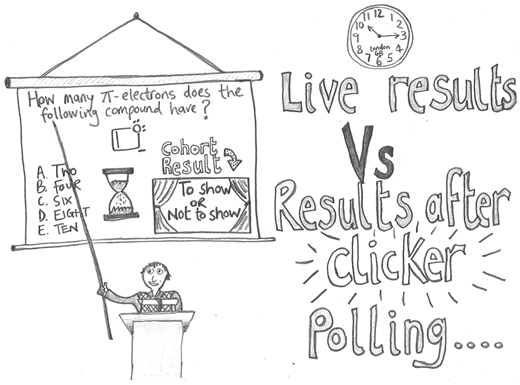 How many π-electrons does the
following compound have?
:O:
A. Two
B. Four
C. Six
D. Eight
E. Ten
Cohort
Result
To show
OR
Not to show
12
11 1
10 2
9 3
8 4
7 6 5
London
GB
Live results
Vs
Results after
clicker
Polling....